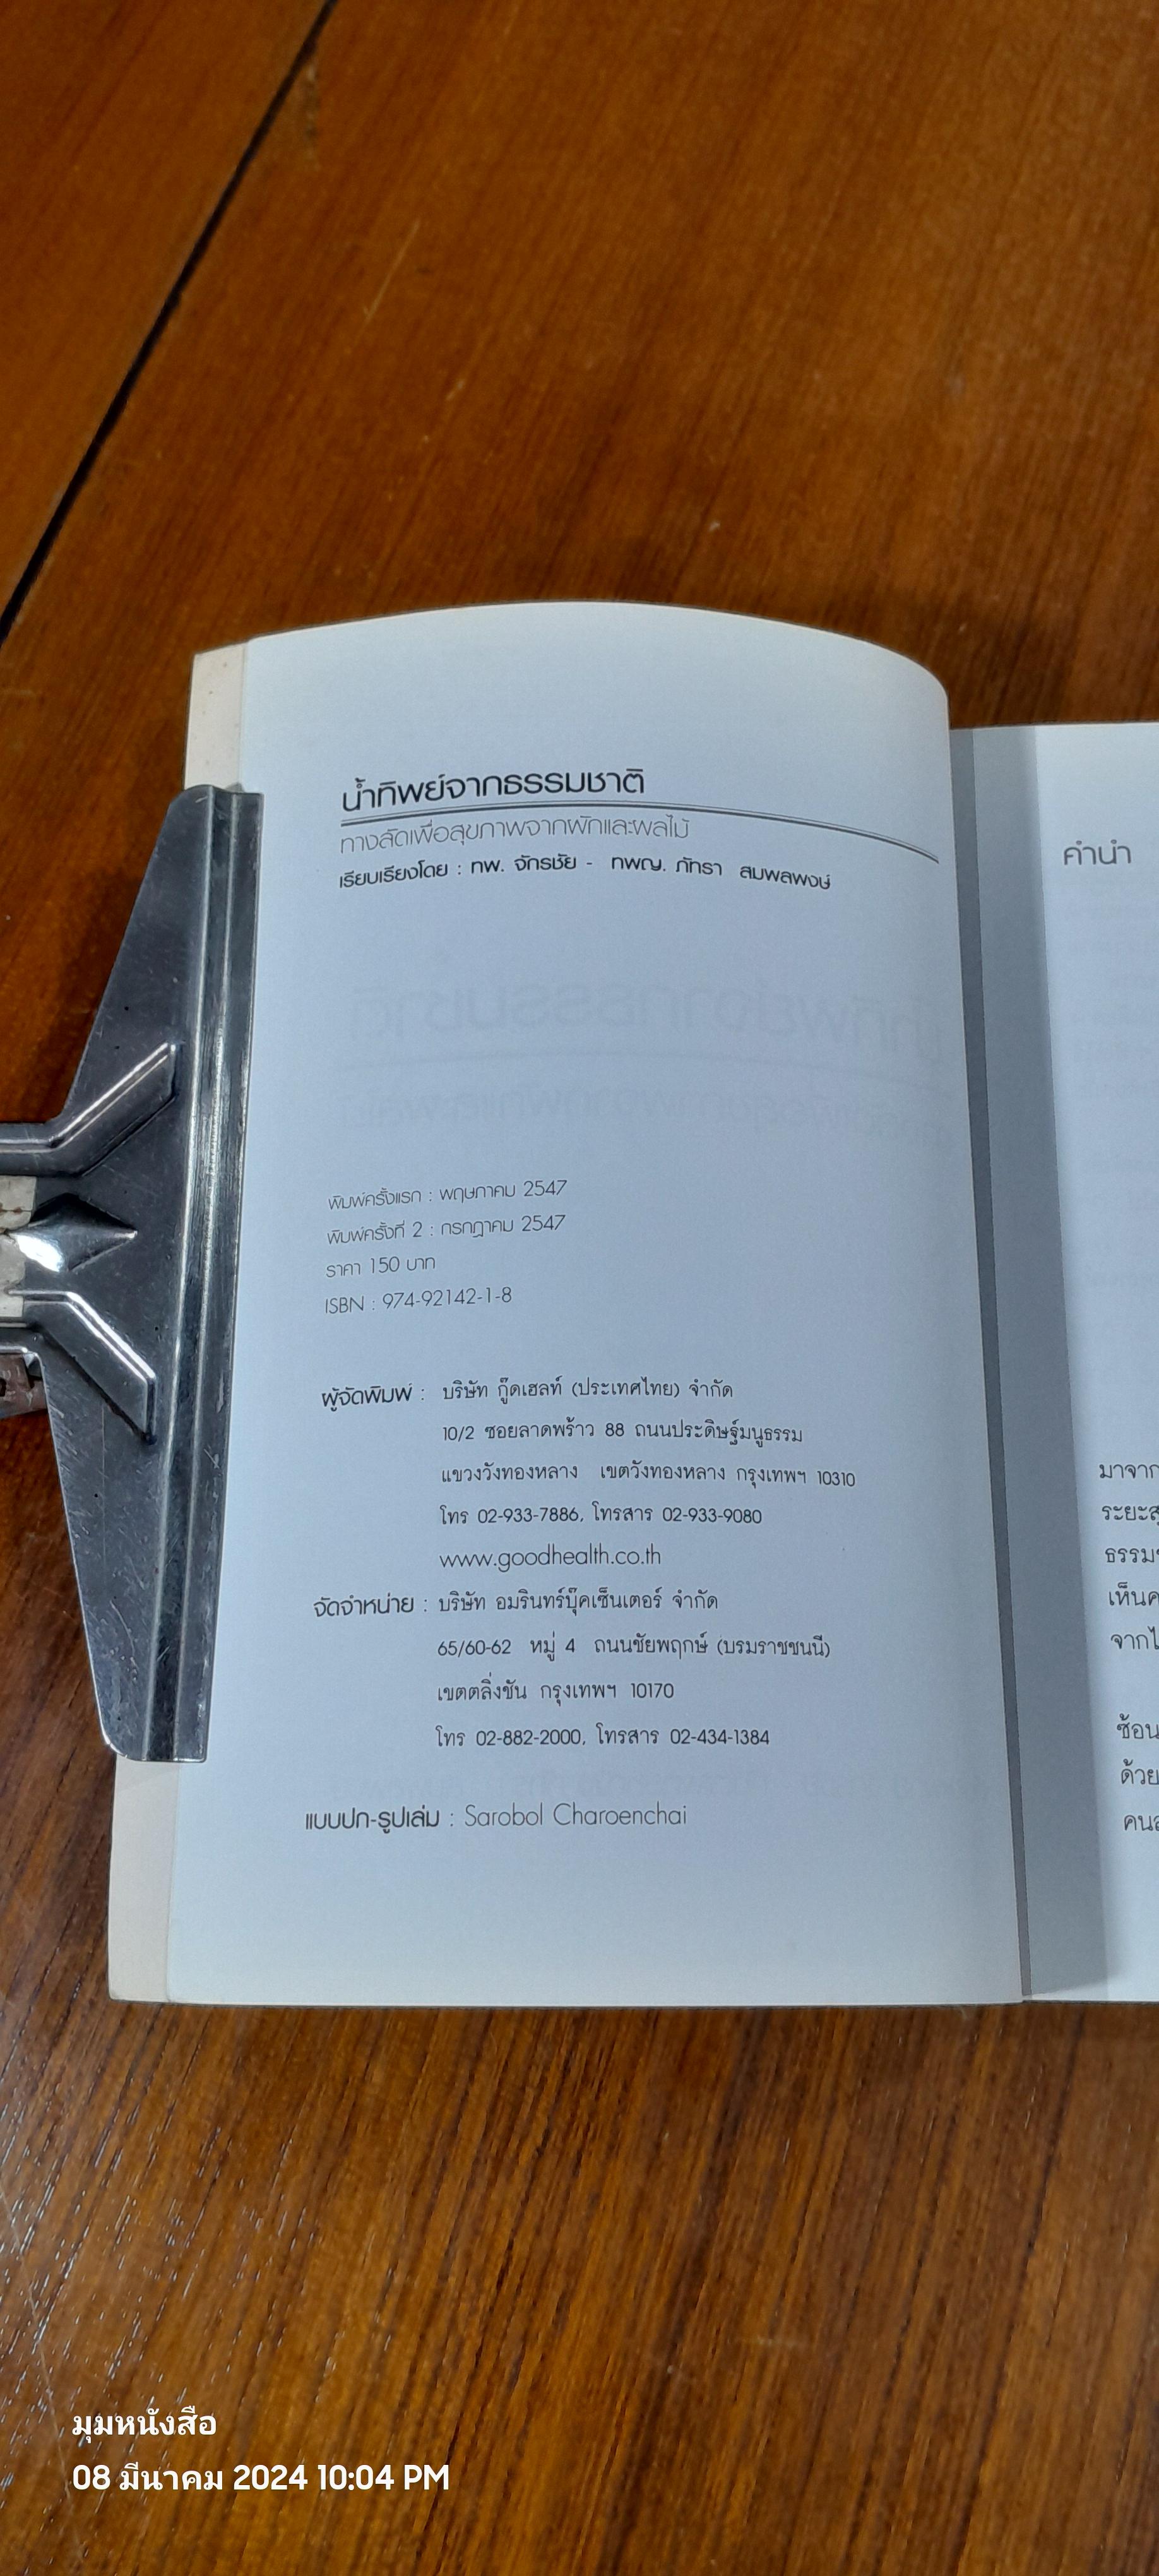 น้ำทิพย์จากธรรมชาติ
ทางลัดเพื่อสุขภาพจากผักและผลไม้
เรียบเรียงโดย : ทพ. จักรชัย - ทพญ. ภัทรา สมพลพงษ์
พิมพ์ครั้งแรก : พฤษภาคม 2547
พิมพ์ครั้งที่ 2 : กรกฎาคม 2547
ราคา 150 บาท
ISBN : 974-92142-1-8
ผู้จัดพิมพ์ : บริษัท กู๊ดเฮลท์ (ประเทศไทย) จำกัด
10/2 ซอยลาดพร้าว 88 ถนนประดิษฐ์มนูธรรม
แขวงวังทองหลาง เขตวังทองหลาง กรุงเทพฯ 10310
โทร 02-933-7886, โทรสาร 02-933-9080
www.goodhealth.co.th
จัดจำหน่าย : บริษัท อมรินทร์บุ๊คเซ็นเตอร์ จำกัด
65/60-62 หมู่ 4 ถนนชัยพฤกษ์ (บรมราชชนนี)
เขตตลิ่งชัน กรุงเทพฯ 10170
โทร 02-882-2000, โทรสาร 02-434-1384
แบบปก-รูปเล่ม : Sarobol Charoenchai
คำนำ
มาจาก
เห็น
ซ้อน
ด้วย
มุมหนังสือ
08 มีนาคม 2024 10:04 PM